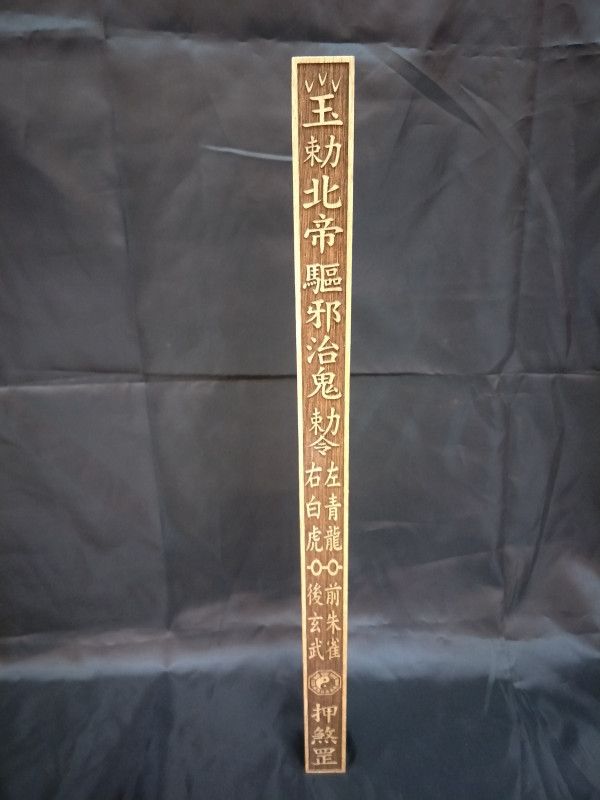 玉勅北帝驅邪治鬼
勅令
左青龍
右白虎
前朱雀
後玄武
押煞罡